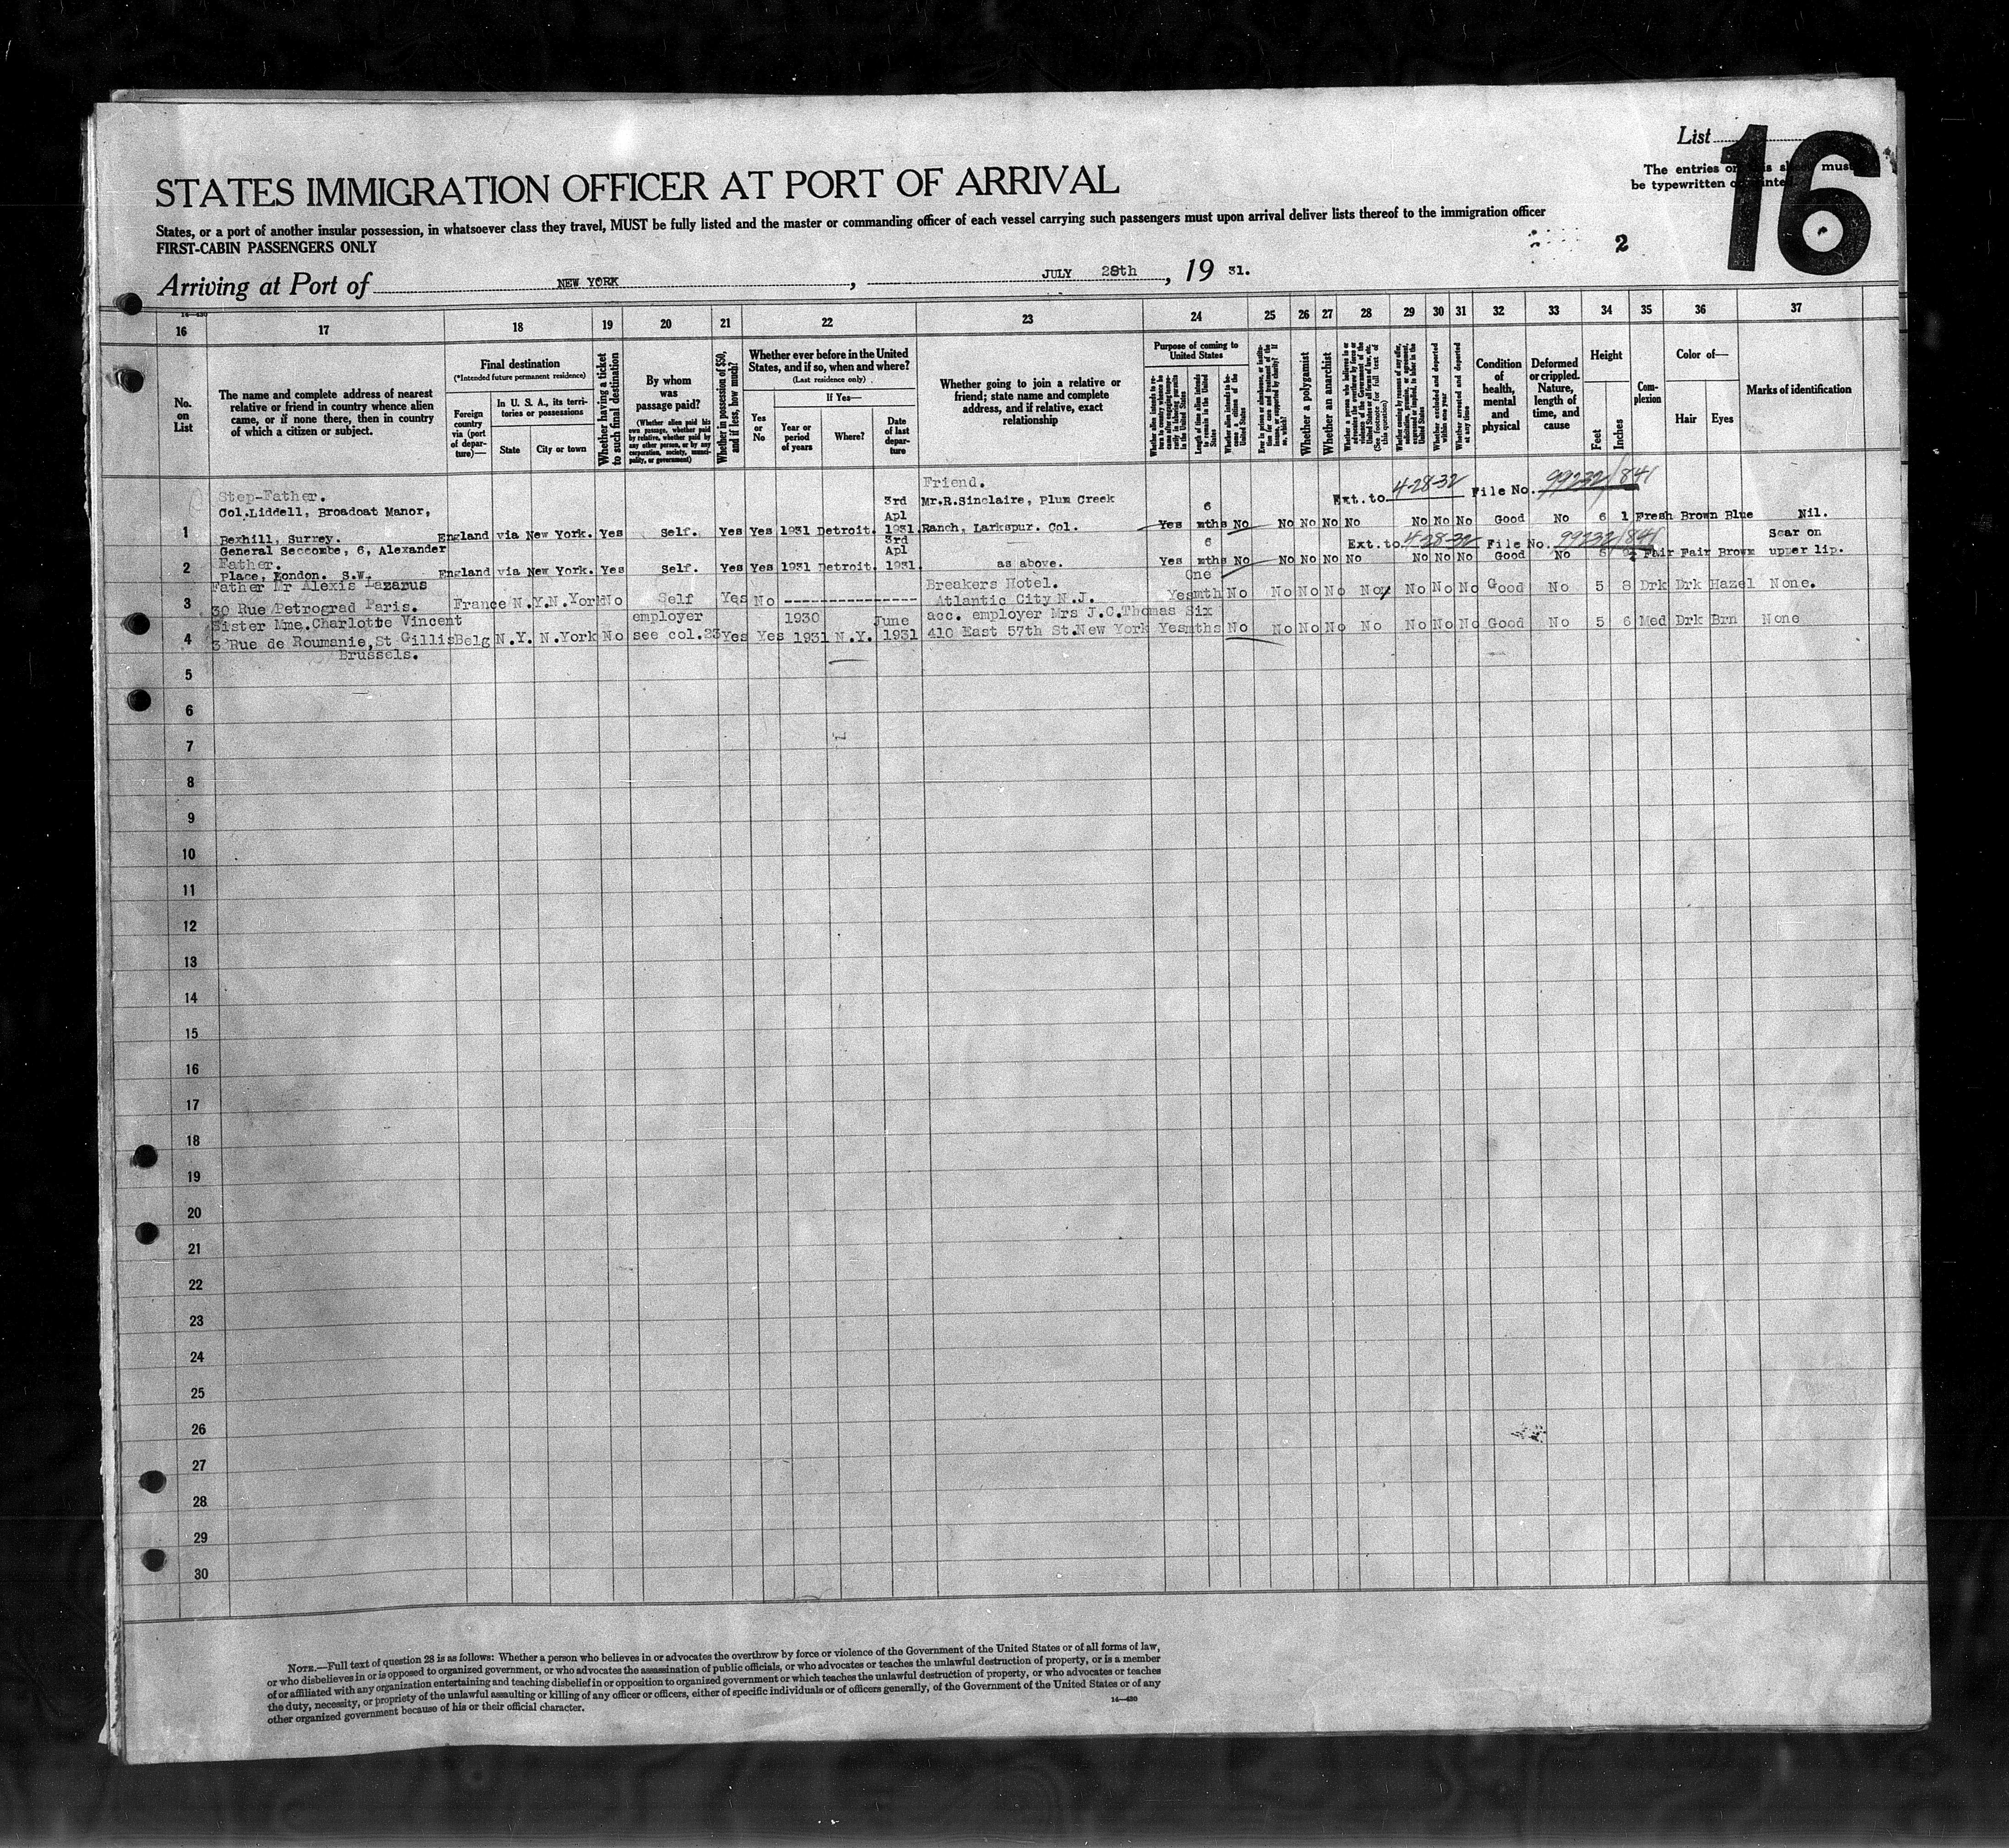 List
16
The entries on this sheet must
be typewritten or printed
STATES IMMIGRATION OFFICER AT PORT OF ARRIVAL
States, or a port of another insular possession, in whatsoever class they travel, MUST be fully listed and the master or commanding officer of each vessel carrying such passengers must upon arrival deliver lists thereof to the immigration officer
FIRST-CABIN PASSENGERS ONLY
2
Arriving at Port of NEW YORK, JULY 28th, 19 31.
14—430
16 17 18 19 20 21 22 23 24 25 26 27 28 29 30 31 32 33 34 35 36 37
No. on List
The name and complete address of nearest relative or friend in country whence alien came, or if none there, then in country of which a citizen or subject.
Final destination
(*Intended future permanent residence)
Foreign country via (port of departure)—
In U. S. A., its territories or possessions
State
City or town
Whether having a ticket to such final destination
By whom was passage paid?
(Whether alien paid his own passage, whether paid by relative, whether paid by any other person, or by any corporation, society, municipality, or government)
Whether in possession of $50, and if less, how much?
Whether ever before in the United States, and if so, when and where?
(Last residence only)
Yes or No
If Yes—
Year or period of years
Where?
Date of last departure
Whether going to join a relative or friend; state name and complete address, and if relative, exact relationship
Purpose of coming to United States
Length of time alien intends to remain in the United States
Whether alien intends to become a citizen of the United States
Whether a polygamist
Whether an anarchist
(See footnote for full text of this question)
Whether excluded and deported within one year
Whether arrested and deported at any time
Condition of health, mental and physical
Deformed or crippled. Nature, length of time, and cause
Height
Feet
Inches
Complexion
Color of—
Hair
Eyes
Marks of identification
Step-Father. Friend. Ext. to 4-28-32 File No. 99232/841
Col.Liddell, Broadoat Manor, 3rd Apl Mr.R.Sinclaire, Plum Creek 6
1 Bexhill, Surrey. England via New York. Yes Self. Yes Yes 1931 Detroit. 1931. Ranch, Larkspur. Col. Yes mths No No No No No No No No Good No 6 1 Fresh Brown Blue Nil.
General Seccombe, 6, Alexander 3rd Apl 6 Ext. to 4-28-32 File No. 99232/841 Scar on
2 Father. England via New York. Yes Self. Yes Yes 1931 Detroit. 1931. as above. Yes mths No No No No No No No No Good No 5 Fair Fair Brown upper lip.
Place, London. S.W.
Father Mr Alexis Lazarus Breakers Hotel. One
3 30 Rue Petrograd Paris. France N.Y. N.York No Self Yes No --------------- Atlantic City N.J. Yes mth No No No No No No No No Good No 5 8 Drk Drk Hazel None.
Sister Mme.Charlotte Vincent employer 1930 June acc. employer Mrs J.C.Thomas Six
4 3 Rue de Roumanie,St Gillis Belg N.Y. N.York No see col.23 Yes Yes 1931 N.Y. 1931 410 East 57th St.New York Yes mths No No No No No No No No Good No 5 6 Med Drk Brn None
Brussels.
5
6
7
8
9
10
11
12
13
14
15
16
17
18
19
20
21
22
23
24
25
26
27
28
29
30
NOTE.—Full text of question 28 is as follows: Whether a person who believes in or advocates the overthrow by force or violence of the Government of the United States or of all forms of law,
or who disbelieves in or is opposed to organized government, or who advocates the assassination of public officials, or who advocates or teaches the unlawful destruction of property, or is a member
of or affiliated with any organization entertaining and teaching disbelief in or opposition to organized government or which teaches the unlawful destruction of property, or who advocates or teaches
the duty, necessity, or propriety of the unlawful assaulting or killing of any officer or officers, either of specific individuals or of officers generally, of the Government of the United States or of any
other organized government because of his or their official character.
14—430